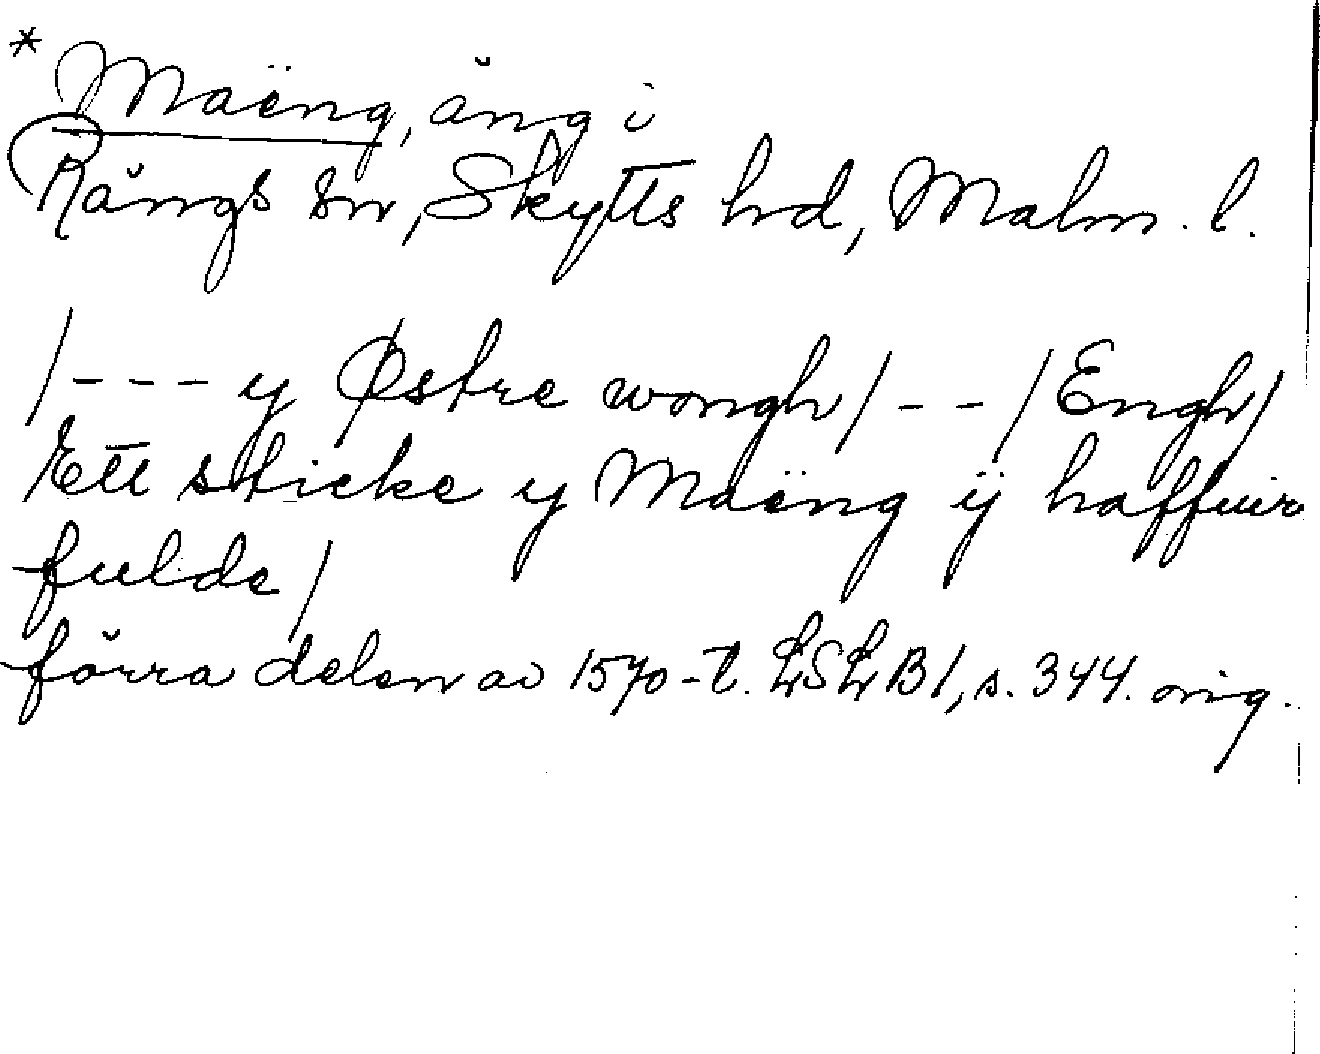 * Maëng, äng i
Rängs sn, Skytts hd, Malm. l.
/--- y Østre wongh/--/Engh/
Ett sticke y Maëng ÿ haffuir
fulde/
förra delen av 1570-t. LSLB1, s. 344. orig.